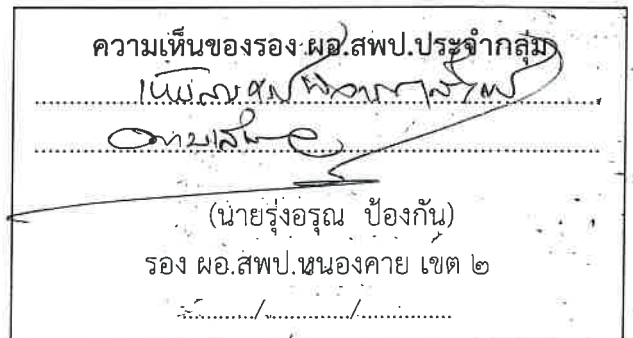 ความเห็นของรอง ผอ.สพป.ประจำกลุ่ม
ตามเสนอ
(นายรุ่งอรุณ ป้องกัน)
รอง ผอ.สพป.หนองคาย เขต ๒
............/............../..............